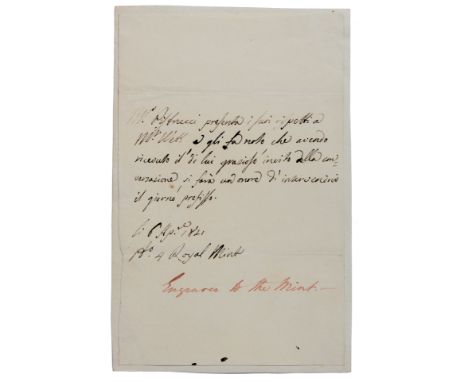 Mr. Pistrucci presenta i suoi rispetti a
Mr. Nott e gli fa noto che avendo
ricevuto il di lui grazioso invito della con-
versazione, si farà un onore d'intervenirvi
il giorno prefisso.
li 6 Ap. 1821
No. 4 Royal Mint
Engraver to the Mint —